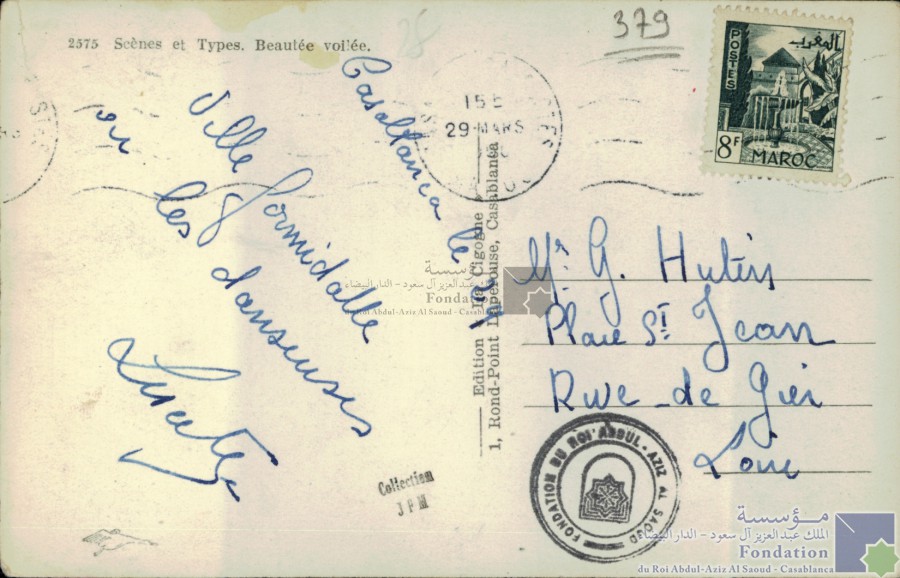 379
2575 Scènes et Types. Beautée voilée.
Casablanca le
Ville formidable
les danseuses
15
29 MARS
POSTES
المغرب
8F
MAROC
Edition La Cigogne
1, Rond-Point Lapérouse, Casablanca
Mr. G. Hutin
Place St Jean
Rive-de-Gier
Loire
Collection
JPM
FONDATION DU ROI ABDUL-AZIZ AL SAOUD
مؤسسة
الملك عبد العزيز آل سعود - الدار البيضاء
Fondation
du Roi Abdul-Aziz Al Saoud - Casablanca
مؤسسة
الملك عبد العزيز آل سعود - الدار البيضاء
Fondation
du Roi Abdul-Aziz Al Saoud - Casablanca